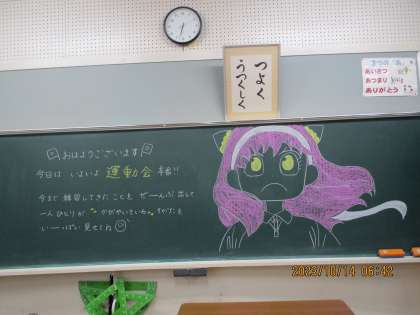 つよく
うつくしく
あいさつ
あつまり
ありがとう
おはようございます
今日は いよいよ 運動会 本番!!
今まで 練習してきたことを ぜーんぶ出して
一人ひとりが かがやいている
いーっぱい 見せてね
2023/10/14 06:42